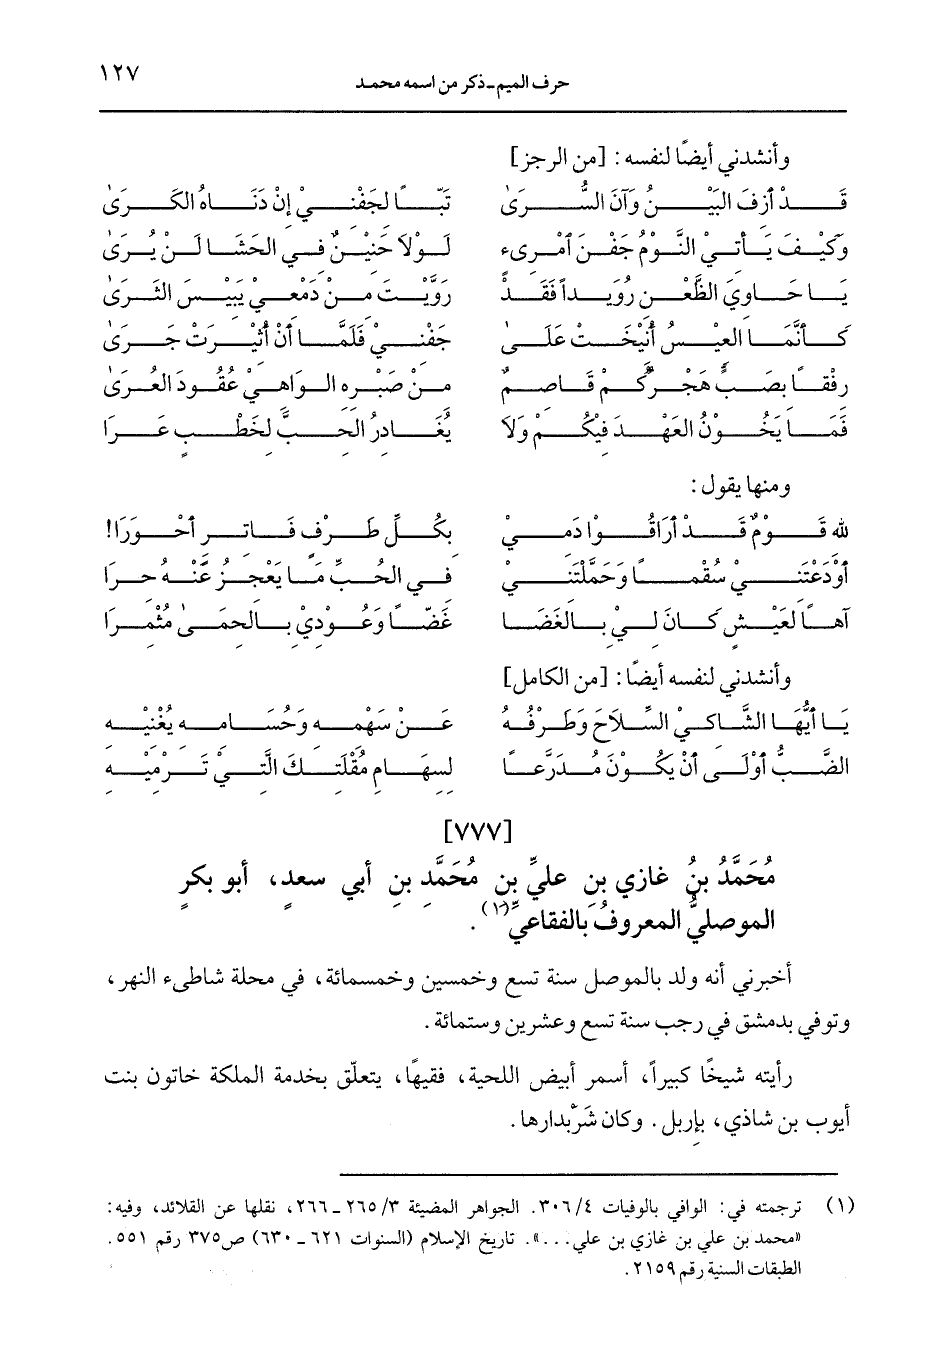 ١٢٧
حرف الميم - ذكر من اسمه محمد
وأنشدني أيضًا لنفسه: [من الرجز]
قَدْ أزِفَ البَيْنُ وَآنَ السُّرَىٰ تَبًّا لِجَفْنِيْ إنْ دَنَاهُ الكَرَىٰ
وَكَيْفَ يَأتِيْ النَّوْمُ جَفْنَ اَمْرِىءٍ لَوْلاَ حَنِيْنٌ فِي الحَشَا لَنْ يُرَىٰ
يَا حَاوِيَ الظَّعْنِ رُوَيداً فَقَدْ رَوَّيْتَ مِنْ دَمْعِيْ يَبِيْسَ الثَرَىٰ
كَأنَّمَا العِيْسُ أُنيْخَتْ عَلَىٰ جَفْنِيْ فَلَمَّا أنْ أُثِيْرَتْ جَرَىٰ
رِفْقاً بِصَبٍّ هَجْرُكُمْ قَاصِمٌ مِنْ صَبْرِهِ الوَاهِيْ عُقُودَ العُرَىٰ
فَمَا يَخُوْنُ العَهْدَ فِيْكُمْ وَلاَ يُغَادِرُ الحَبَّ لِخَطْبٍ عَرَا
ومنها يقول:
لله قَوْمٌ قَدْ أرَاقُوْا دَمِيْ بِكُلِّ طَرْفٍ فَاتِرٍ أحْوَرَا!
أوْدَعْتَنِيْ سُقْمًا وَحَمَّلْتَنِيْ فِي الحُبِّ مَا يَعْجِزُ عَنْهُ حِرَا
آهًا لِعَيْشٍ كَانَ لِيْ بِالغَضَا غَضًّا وَعُوْدِيْ بِالحِمَىٰ مُثْمِرَا
وأنشدني لنفسه أيضًا: [من الكامل]
يَا أيُّهَا الشَّاكِيْ السِّلاَحَ وَطَرْفُهُ عَنْ سَهْمِهِ وَحُسَامِهِ يُغْنِيْهِ
الصَّبُّ أوْلَى أنْ يَكُوْنَ مُدَرَّعًا لِسِهَامِ مُقْلَتِكَ الَّتِيْ تَرْمِيْهِ
[٧٧٧]
مُحَمَّدُ بنُ غازي بنِ عليِّ بن مُحَمَّدِ بنِ أبي سعدٍ، أبو بكرٍ
الموصليُّ المعروفُ بالفقاعيِّ(١).
أخبرني أنه ولد بالموصل سنة تسع وخمسين وخمسمائة، في محلة شاطىء النهر،
وتوفي بدمشق في رجب سنة تسع وعشرين وستمائة.
رأيته شيخًا كبيراً، أسمر أبيض اللحية، فقيهًا، يتعلّق بخدمة الملكة خاتون بنت
أيوب بن شاذي، بإربل. وكان شَرْبدارها.
(١) ترجمته في: الوافي بالوفيات ٣٠٦/٤. الجواهر المضيئة ٢٦٥/٣ - ٢٦٦، نقلها عن القلائد، وفيه:
«محمد بن علي بن غازي بن علي...». تاريخ الإسلام (السنوات ٦٢١ - ٦٣٠) ص٣٧٥ رقم ٥٥١.
الطبقات السنية رقم ٢١٥٩.